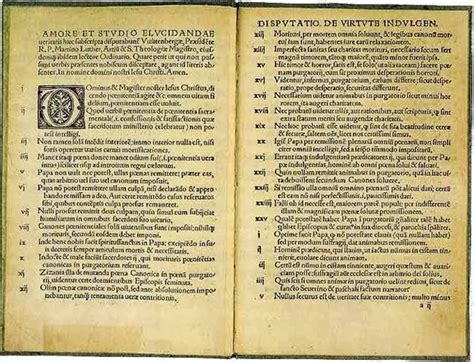 AMORE ET STVDIO ELVCIDANDAE
ueritatis hæc subscripta disputabunt Vuittenbergæ, Præsidēte
R. P. Martino Luther, Artiū & S. Theologiæ Magistro, eius-
demq; ibidem lectore Ordinario. Quare petit ut qui non pos-
sunt uerbis præsentes nobiscum disceptare, agant id literis ab-
sentes. In nomine domini nostri Iesu Christi. Amen.
Dominus & Magister noster Iesus Christus, di-
cendo pœnitentiā agite &c̄. omnem uitam fi-
delium, pœnitentiam esse uoluit.
ij Quod uerbū de pœnitentia sacra-
mentali (.i. confessionis & satisfactionis quæ
sacerdotum ministerio celebratur) non po-
test intelligi.
iij Non tamen solā intēdit interiorē; immo interior nulla est, nisi
foris operetur uarias carnis mortificationes.
iiij Manet itaq; pœna donec manet odium sui (.i. pœnitentia uera
intus) scilicet usq; ad introitum regni cælorum.
v Papa non uult nec potest, ullas pœnas remittere; præter eas,
quas arbitrio uel suo uel canonum imposuit.
vj Papa nō potest remittere ullam culpā, nisi declarādo & appro-
bando remissam a deo. Aut certe remittēdo casus reseruatos
sibi, quibus contēptis culpa prorsus remaneret.
vij Nulli prorsus remittit deus culpam, quin simul eum subijciat
humiliatum in omnibus sacerdoti suo uicario.
viij Canones pœnitentiales solū uiuentibus sunt impositi; nihilq;
morituris, secundū eosdem debet imponi.
ix Inde bene nobis facit spiritussanctus in Papa; excipiendo in su-
is decretis semper articulum mortis & necessitatis.
x Indocte & male faciūt sacerdotes ij, qui morituris pœnitētias
canonicas in purgatorium reseruant.
xj Zizania illa de mutanda pœna Canonica in pœnā purgato-
rij, uidentur certe dormientibus Episcopis seminata.
xij Olim pœnæ canonicæ nō post, sed ante absolutionem im po-
nebantur, tanq̄ tentamenta ueræ contritionis.
DISPVTATIO DE VIRTVTE INDVLGEN.
xiij Morituri, per mortem omnia soluunt, & legibus canonū mor-
tui iam sunt, habentes iure earū relaxationem.
xiiij Imperfecta sanitas seu charitas morituri, necessario secum fert
magnū timorem, tantoq; maiorē, quanto minor fuerit ipsa.
xv Hic timor & horror, satis est, se solo (ut alia taceam) facere pœ-
nam purgatorij, cum sit proximus desperationis horrori.
xvj Videntur, infernus, purgatorium, cælum differre; sicut despe-
ratio, prope desperatio, securitas differunt.
xvij Necessarium uidetur animabus in purgatorio sicut minui hor-
rorem, ita augeri charitatem.
xviij Nec probatū uidetur ullis, aut rationibus, aut scripturis, q̄ sint
extra statum meriti seu augendæ charitatis.
xix Nec hoc probatū esse uidetur, q̄ sint de sua beatitudine certæ
& securæ, saltem oēs, licet nos certissimi simus.
xx Igitur Papa per remissionē plenariā omniū pœnarum, non sim-
pliciter omniū intelligit, sed a seipso tātūmodo impositarū.
xxj Errant itaq; indulgentiarū prædicatores ij, qui dicunt per Pa-
pæ indulgentias, hominē ab omni pœna solui & saluari.
xxij Quin nullam remittit animabus in purgatorio, quā in hac ui-
ta debuissent secundum Canones soluere.
xxiij Si remissio ulla omniū omnino pœnarū pōt alicui dari; certū est
eam nō nisi perfectissimis .i. paucissimis dari.
xxiiij Falli ob id necesse est, maiorem partem populi; per indifferen-
tem illam & magnificam pœnæ solutæ promissionem.
xxv Qualē potestatē habet Papa ī purgatoriū gñaliter; talē habet
quilibet Episcopus & Curatus ī sua diœcesi, & parochia spāliter.
j Optime facit Papa, q̄ nō potestate clauis (quā nullam habet)
sed per modum suffragij, dat animabus remissionem.
ij Hominē prædicant, qui statim, ut iactus nūmus in cistam tin-
nierit, euolare dicunt animam.
iij Certū est nūmo in cistam tinniente, augeri quæstum & auari-
ciam posse; suffragiū aūt ecclesiæ in arbitrio dei solius est.
iiij Quis scit si omnes animæ in purgatorio uelint redimi, sicut de
sancto Seuerino & paschali factum narratur.
v Nullus securus est de ueritate suæ contritionis; multominus
a ij